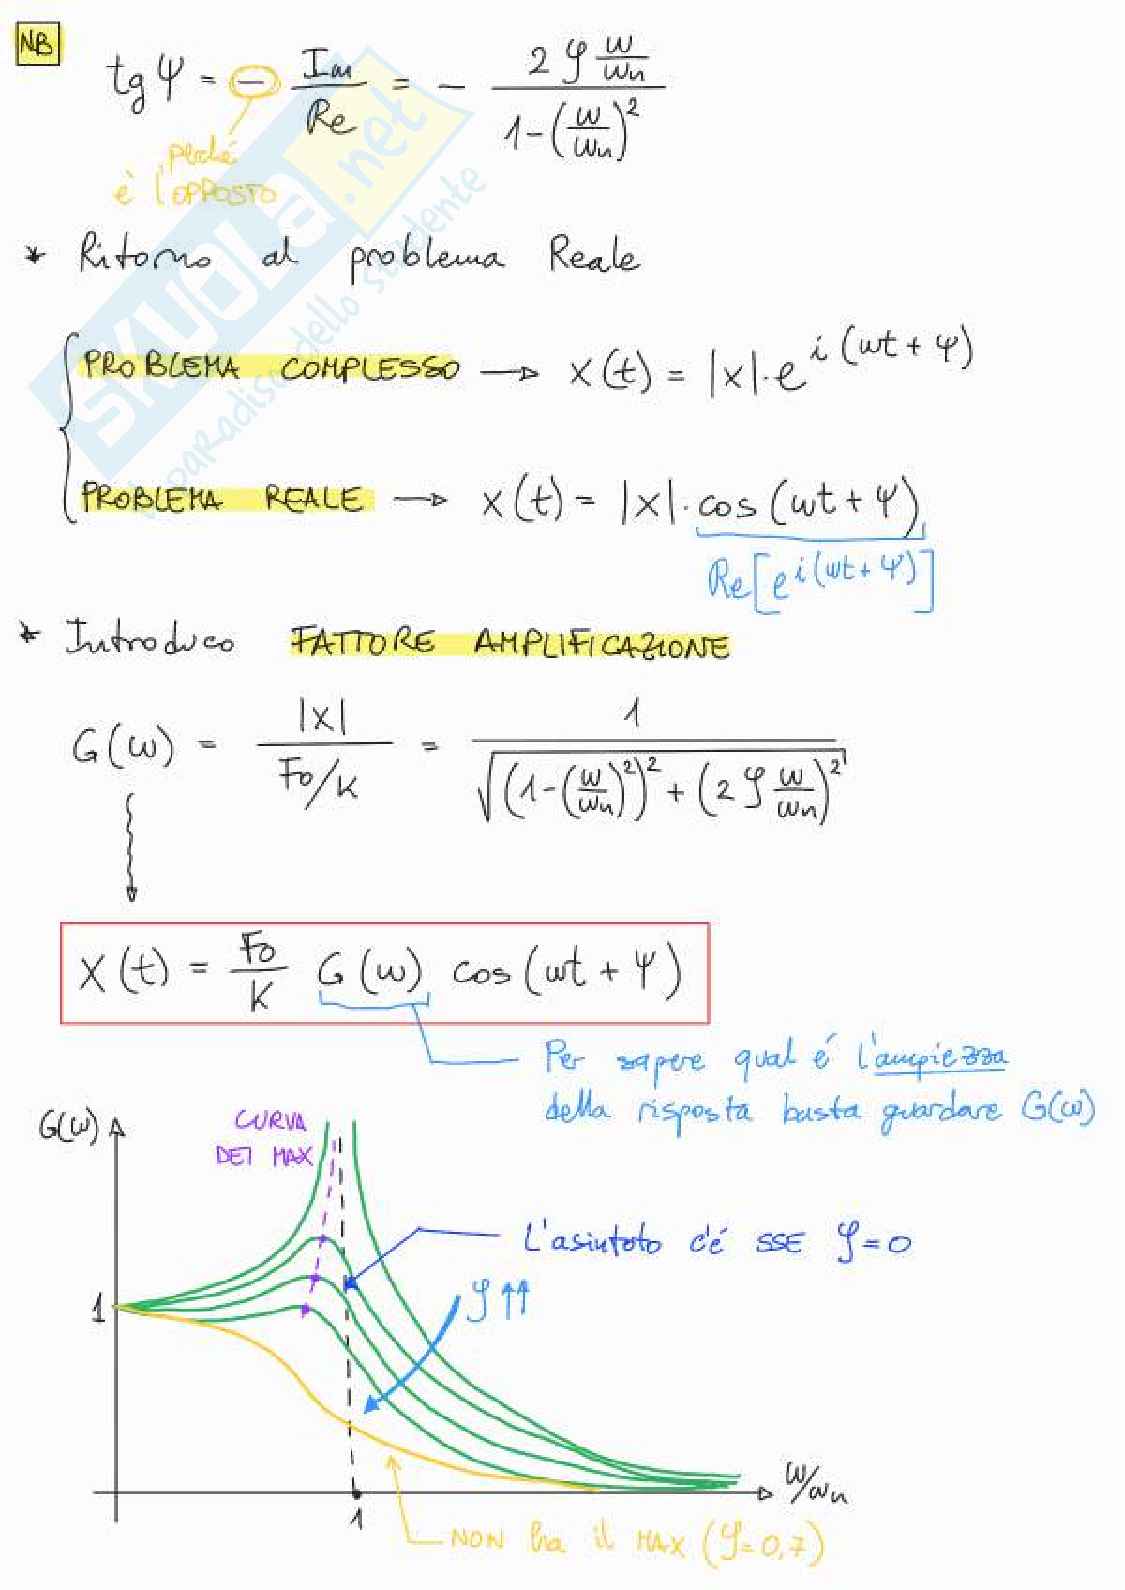 NB
tg ψ = - Im/Re = - (2 ζ ω/ωn) / (1-(ω/ωn)²)
perché
è l'OPPOSTO
SKUOLA.net
il paradiso dello studente
* Ritorno al problema Reale
PROBLEMA COMPLESSO → x(t) = |x|·e^i(ωt + ψ)
PROBLEMA REALE → x(t) = |x|·cos(ωt + ψ)
Re[e^i(ωt + ψ)]
* Introduco FATTORE AMPLIFICAZIONE
G(ω) = |x| / (Fo/K) = 1 / √((1-(ω/ωn)²)² + (2 ζ ω/ωn)²)
X(t) = Fo/K G(ω) cos(ωt + ψ)
Per sapere qual é l'ampiezza
della risposta basta guardare G(ω)
G(ω)
CURVA
DEI MAX
L'asintoto c'é SSE ζ=0
ζ↑↑
1
ω/ωn
1
NON ha il MAX (ζ=0,7)